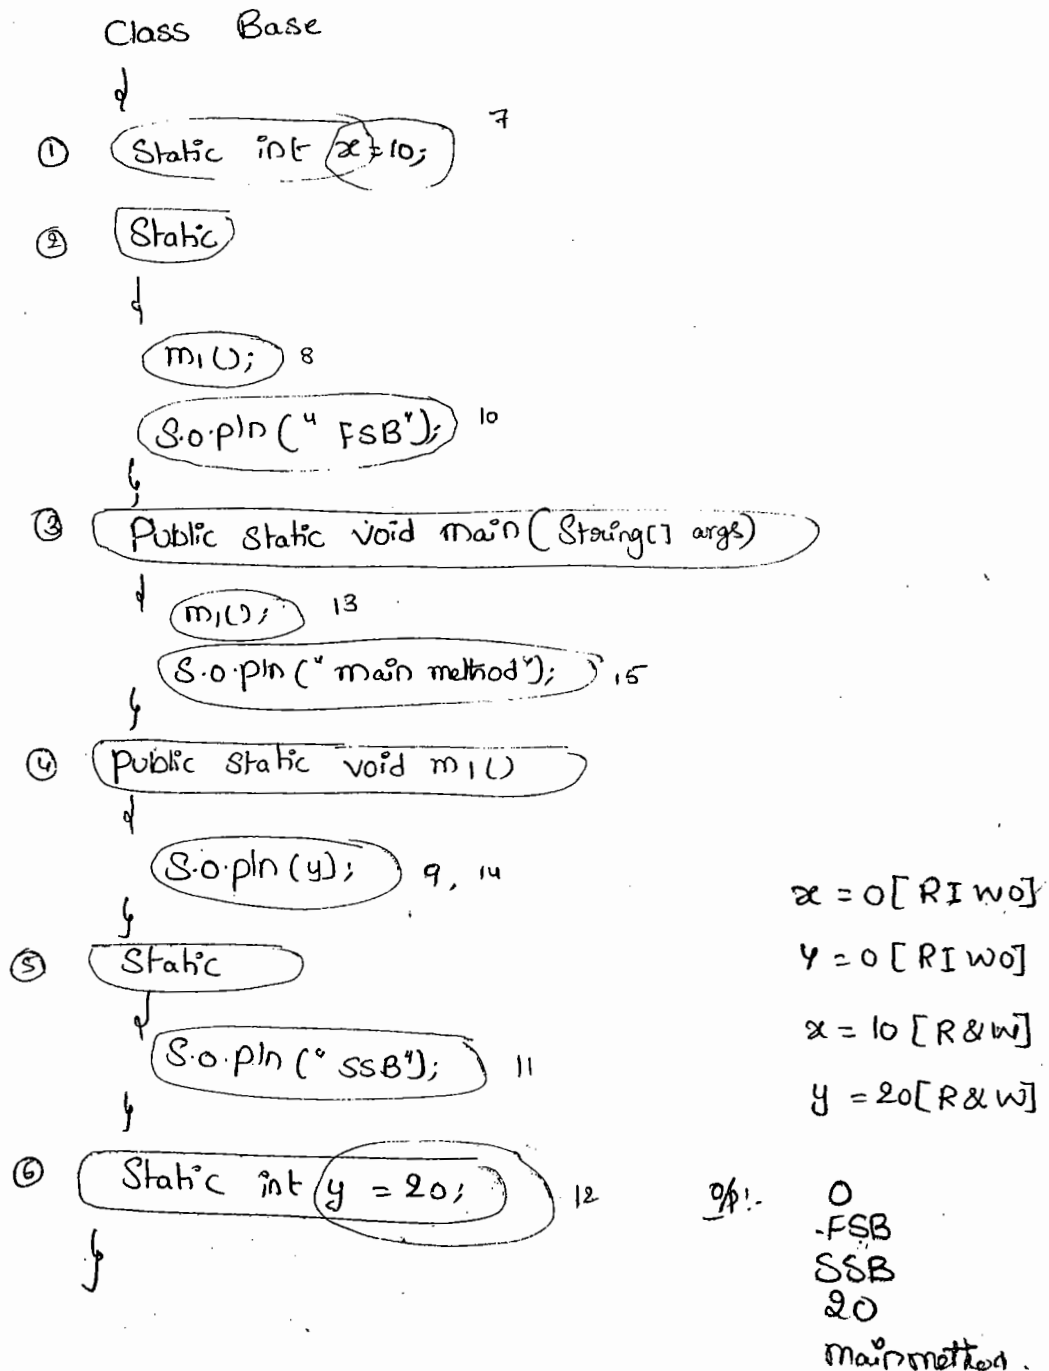 Class Base
{
① Static int x=10; 7
② Static
{
m1(); 8
S.o.pln("FSB"); 10
}
③ Public static void main(String[] args)
{
m1(); 13
S.o.pln("main method"); 15
}
④ Public static void m1()
{
S.o.pln(y); 9, 14
}
⑤ Static
{
S.o.pln("SSB"); 11
}
⑥ Static int y = 20; 12
}
x = 0 [RIWO]
y = 0 [RIWO]
x = 10 [R&W]
y = 20 [R&W]
o/p:- 0
FSB
SSB
20
main method.